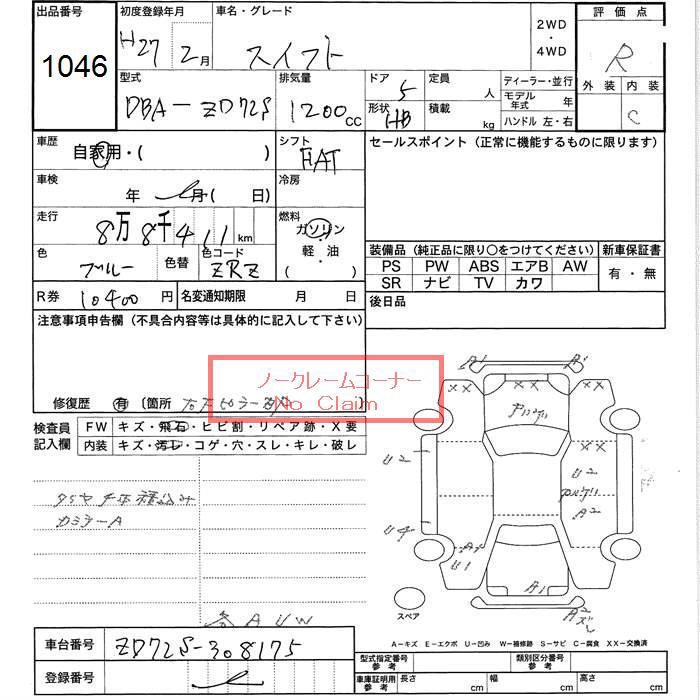 出品番号
1046
初度登録年月
H27 2月
車名・グレード
スイフト
2WD
・
4WD
評価点
R
外装 内装
C
型式
DBA-ZD72S
排気量
1200cc
ドア
5
形状
HB
定員
人
積載
kg
ディーラー・並行
モデル年式 年
ハンドル 左・右
車歴
自家用・( )
シフト
FAT
セールスポイント（正常に機能するものに限ります）
車検
年 月( 日)
冷房
走行
8万8千411km
燃料
ガソリン
・
軽・油
( )
色
ブルー
色替
色コード
ZRZ
装備品（純正品に限り○をつけてください）
新車保証書
PS PW ABS エアB AW
SR ナビ TV カワ
有・無
R券
10400円
名変通知期限 月 日
後日品
注意事項申告欄（不具合内容等は具体的に記入して下さい）
ノークレームコーナー
No Claim
修復歴 有 〔箇所
検査員記入欄
FW キズ・飛石・ヒビ割・リペア跡・X要
内装 キズ・汚レ・コゲ・穴・スレ・キレ・破レ
カミラーA
各AUW
A1
XX XX
XX
U2
U2
A2
U4
A1
U1
A1
A2
スペア
A－キズ E－エクボ U－凹み W－補修跡 S－サビ C－腐食 XX－交換済
車台番号
ZD72S-308175
登録番号
型式指定番号 参考
類別区分番号 参考
車庫証明用 参考
長さ cm
幅 cm
高さ cm